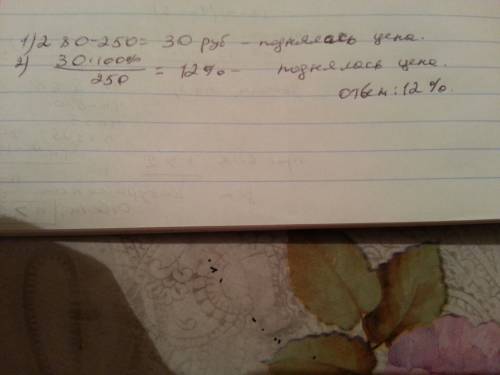 1) 280-250= 30 руб - поднялась цена.
2) 30·100% / 250 = 12% - поднялась цена.
ответ: 12%.